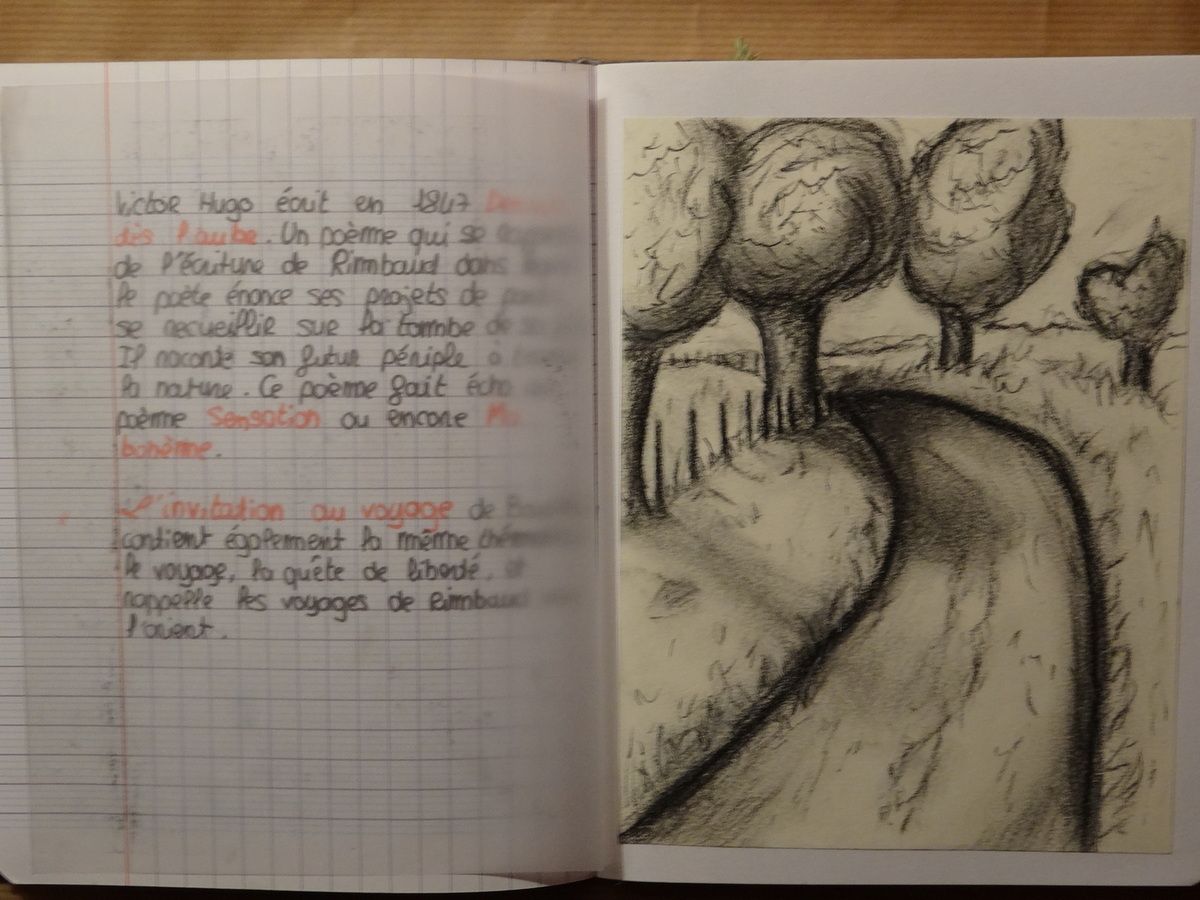 Victor Hugo écrit en 1847 Demain
dès l'aube. Un poème qui se
de l'écriture de Rimbaud dans
le poète énonce ses projets de
se recueillir sur la tombe de
Il raconte son futur périple à
la nature. Ce poème fait écho
poème Sensation ou encore Ma
bohème.
L'invitation au voyage de
contient également la même
le voyage, la quête de liberté, et
rappelle les voyages de Rimbaud
l'orient.